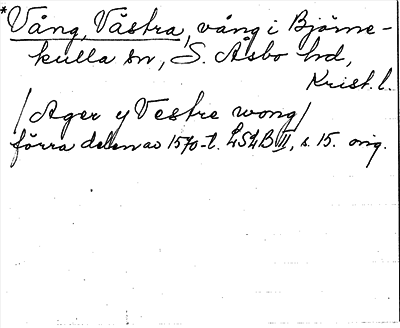 *Vång, Västra, vång i Björne-
kulla sn, S. Åsbo hd,
Krist. l.
/Ager y Vestre wong/
förra delen av 1570-t. LSLB III, s. 15. orig.